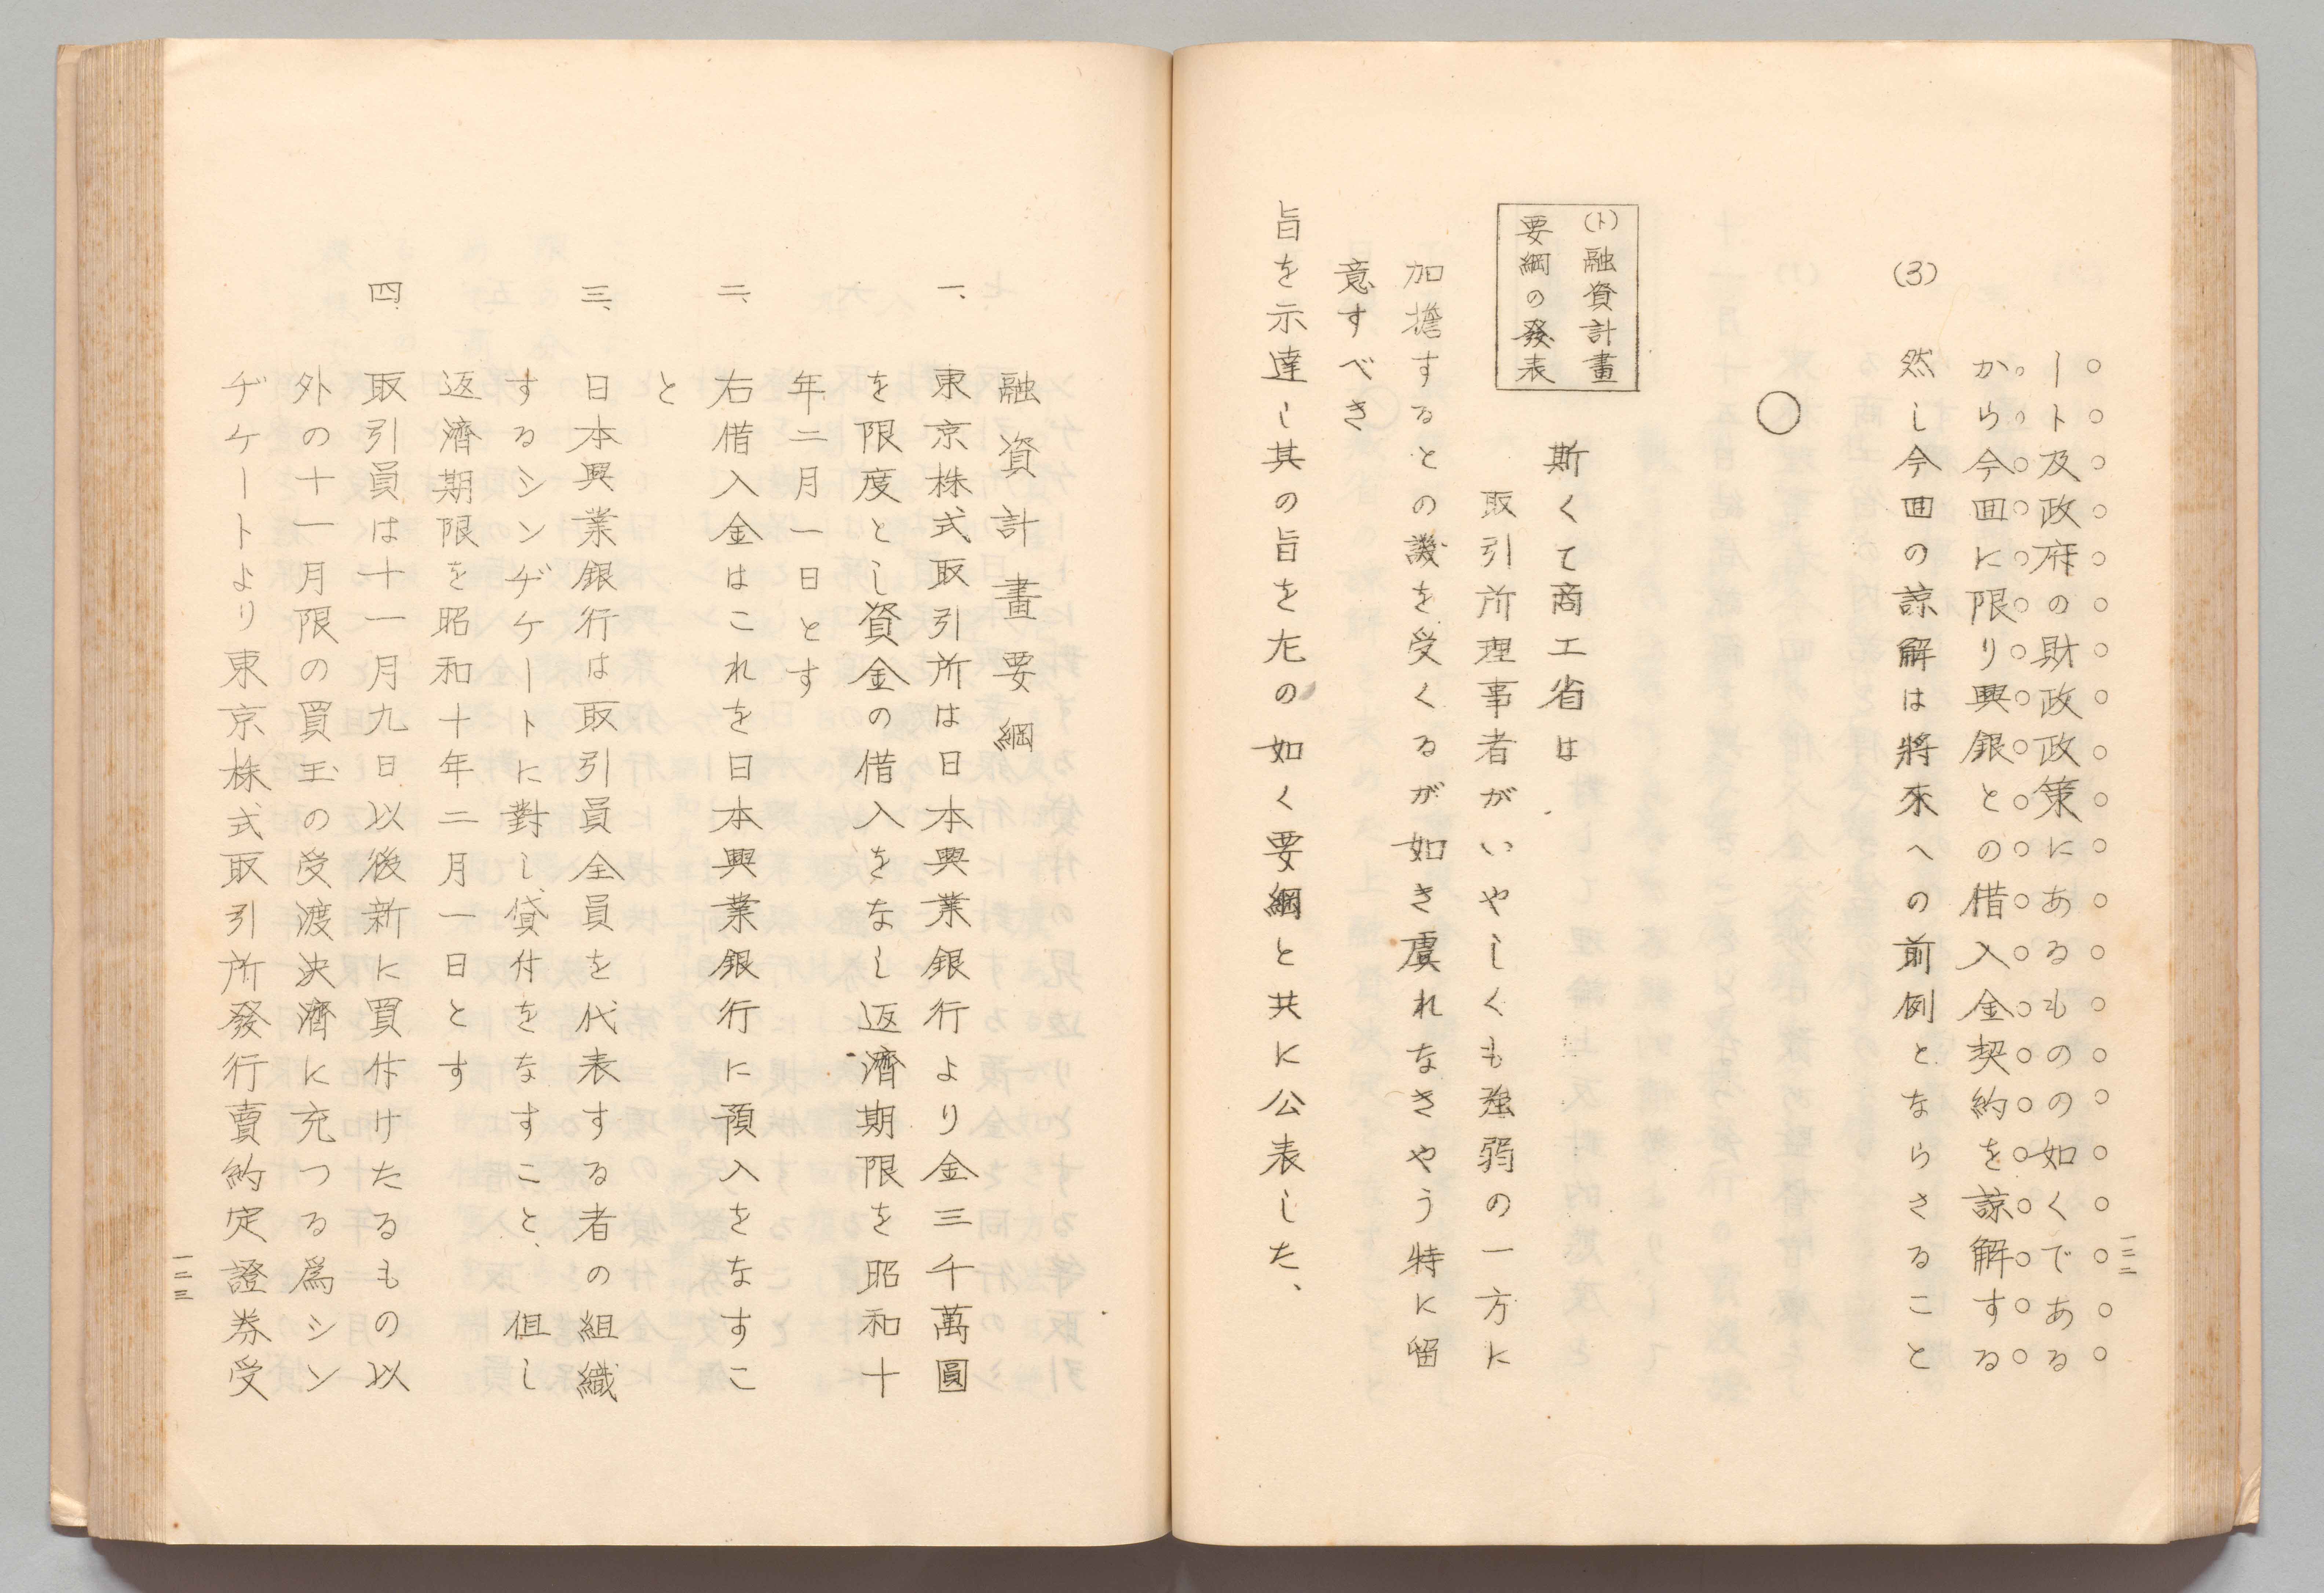 ート及政府の財政政策にあるものの如くである
から今囬に限り興銀との借入金契約を諒解する
(3) 然し今囬の諒解は將來への前例とならさること
○
(ト)融資計畫
要綱の發表
斯くて商工省は
取引所理事者がいやしくも強弱の一方に
加擔するとの譏を受くるが如き虞れなきやう特に留
意すべき
旨を示達し其の旨を左の如く要綱と共に公表した、
一三二
融資計畫要綱
一、東京株式取引所は日本興業銀行より金三千萬圓
を限度とし資金の借入をなし返濟期限を昭和十
年二月一日とす
二、右借入金はこれを日本興業銀行に預入をなすこ
と
三、日本興業銀行は取引員全員を代表する者の組織
するシンヂケートに對し貸付をなすこと、但し
返濟期限を昭和十年二月一日とす
四、取引員は十一月九日以後新に買付けたるもの以
外の十一月限の買玉の受渡決濟に充つる爲シン
ヂケートより東京株式取引所發行賣約定證券受
一三三